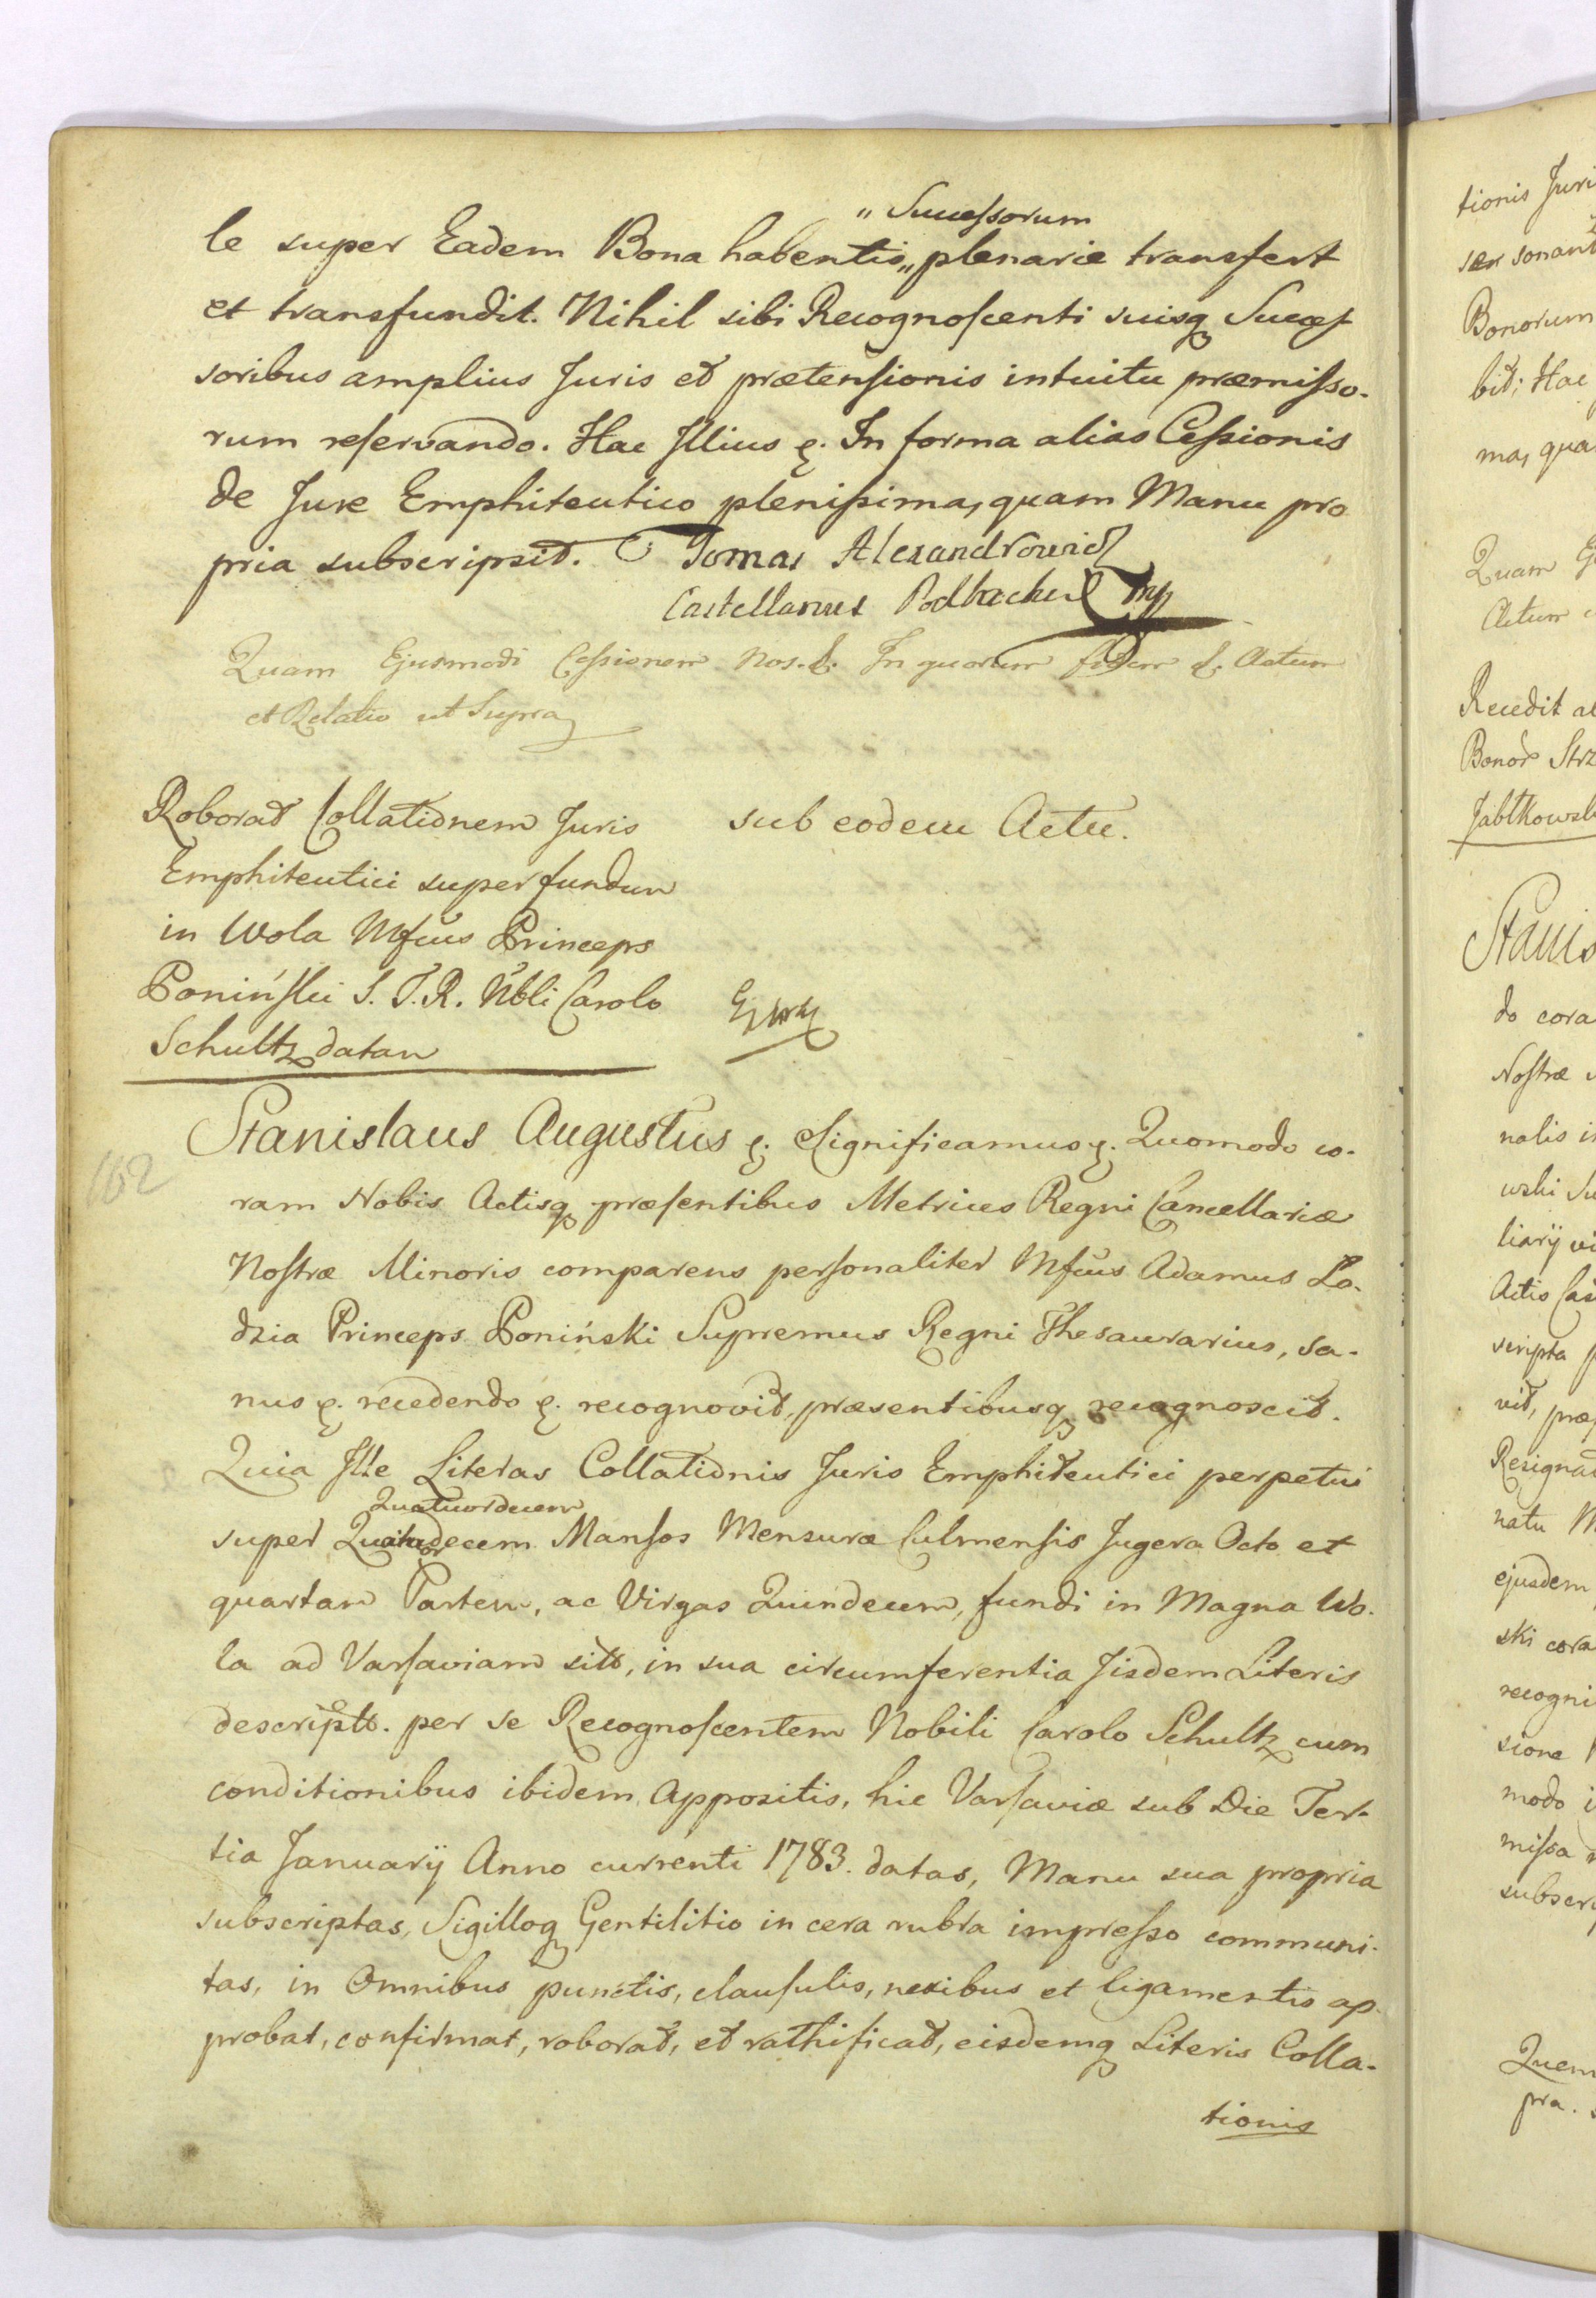 „ Successorum
le super Eadem Bona habentis„ plenarie transfert
et transfundit. Nihil sibi Recognoscenti suisq Succes
soribus amplius Juris et prætensionis intuitu præmisso-
rum reservando. Hac Illius &. In forma alias Cessionis
de Jure Emphiteutico plenissima, quam Manu pro
pria subscripsit. Tomas Alexandrowicz
Castellanus Podlachiæ mp
Quam Ejusmodi Cessionem Nos. &. In quorum fidem &. Actum
et Relatio ut Supra
Roborat Collationem Juris
Emphiteutici super fundum
in Wola Mfcus Princeps
Poniński S. T. R. Nbli Carolo
Schultz datam
sub eodem Actu.
162
Stanislaus Augustus &. Significamus &. Quomodo co-
ram Nobis Actisq præsentibus Metrices Regni Cancellariæ
Nostræ Minoris comparens personaliter Mfcus Adamus Lo-
dzia Princeps Poniński Supremus Regni Thesaurarius, sa-
nus &. recedendo &. recognovit, præsentibusq recognoscit.
Quia Ille Literas Collationis Juris Emphiteutici perpetui
Quatuordecem
super Quatuordecem Mansos Mensuræ Culmensis Jugera Octo et
quartam Partem, ac Virgas Quindecem, fundi in Magna Wo-
la ad Varsaviam sitt, in sua circumferentia Iisdem Literis
descriptt. per se Recognoscentem Nobili Carolo Schultz cum
conditionibus ibidem Appositis, hic Varsaviæ sub Die Ter-
tia Januarij Anno currenti 1783. datas, Manu sua propria
subscriptas, Sigilloq Gentilitio in cera rubra impresso communi-
tas, in Omnibus punctis, clausulis, nexibus et ligamentis ap-
probat, confirmat, roborat, et rathificat, eisdemq Literis Colla-
tionis
tionis Juri
ser sonant
Bonorum
bit; Hac
ma, qua
Quam
Actum
Recedit a
Bonor Strz
Jabłkowsk
Stanis
do cora
Nostræ
nalis i
wski Su
liarij vi
Actis Cas
scripta p
vit, præ
Resignat
natu
ejusdem
ski cora
recogni
sione
modo i
missa
subscr
Quem
pra.